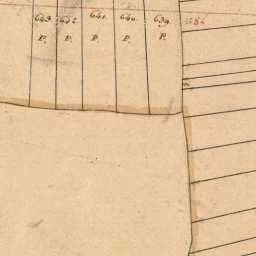 643. 642. 641. 640. 639.
P. P. P. P. P.